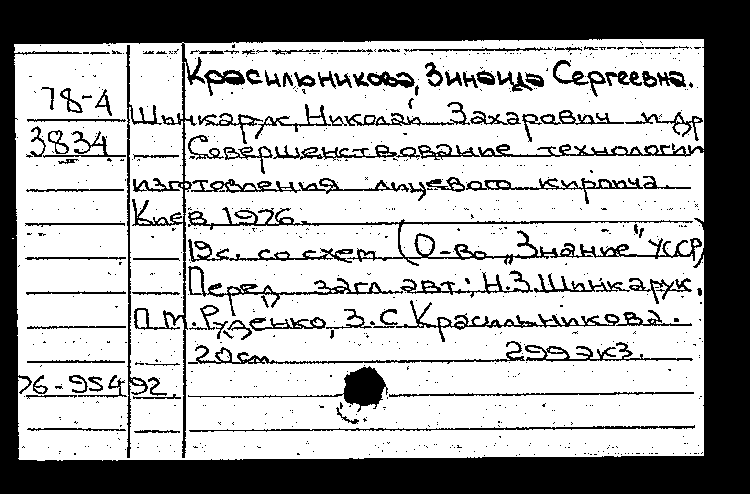 Красильникова, Зинаида Сергеевна.
78-4
Шинкарук, Николай Захарович и др
3834 Совершенствование технологии
изготовления лицевого кирпича.
Киев, 1976.
19с. со схем. (О-во „Знание" УССР)
Перед загл. авт.: Н.З.Шинкарук,
П.М.Руденко, З.С.Красильникова.
20см 299экз.
76-95492.